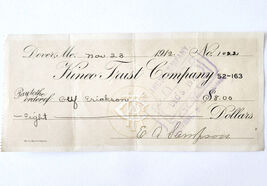 Dover, Me. Nov 23 1912 No. 1022
Kineo Trust Company 52-163
Pay to the
order of Alf Erickson $8.00
Eight Dollars
E A Sampson